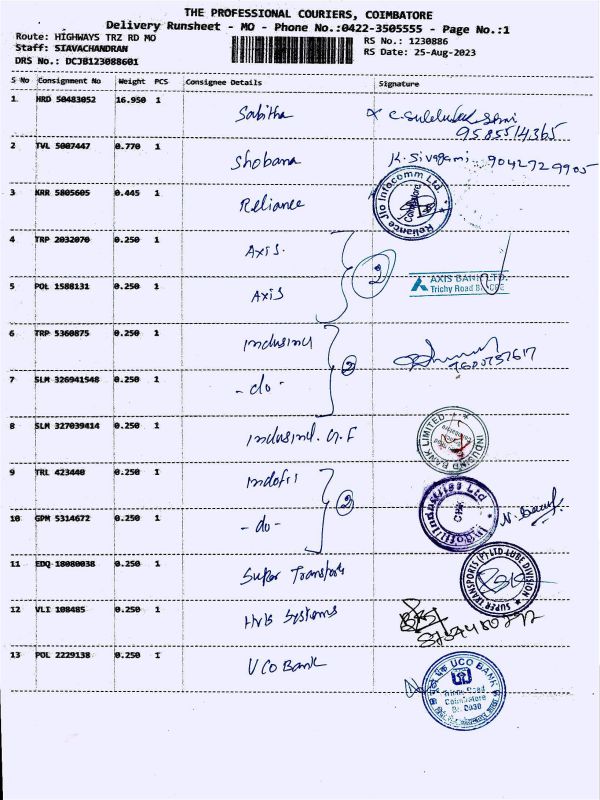 THE PROFESSIONAL COURIERS, COIMBATORE
Delivery Runsheet - MO - Phone No.:0422-3505555 - Page No.:1
Route: HIGHWAYS TRZ RD MO
RS No.: 1230886
Staff: SIAVACHANDRAN
RS Date: 25-Aug-2023
DRS No.: DCJB123088601
S No Consignment No Weight PCS Consignee Details Signature
1 HRD 50483052 16.950 1 Sabitha
9585514365
2 TVL 5007447 0.770 1 Shobana K. Sivagami 9042729905
3 KRR 5805605 0.445 1 Reliance Reliance Jio Infocomm Ltd. Coimbatore
4 TRP 2032070 0.250 1 Axis. 2
5 POL 1588131 0.250 1 Axis AXIS BANK LTD.
Trichy Road
6 TRP 5360875 0.250 1 indusind 2
7 SLM 326941548 0.250 1 - do -
8 SLM 327039414 0.250 1 indusind. INDUSIND BANK LIMITED
9 TRL 423440 0.250 1 indofil 2
10 GPM 5314672 0.250 1 - do - Industries Ltd
11 EDQ 18080038 0.250 1 Super Transports SUPER TRANSPORTS (P) LTD LUBE DIVISION
12 VLI 108485 0.250 1 Systems
13 POL 2229138 0.250 1 UCO Bank UCO BANK
Trichy Road
Coimbatore